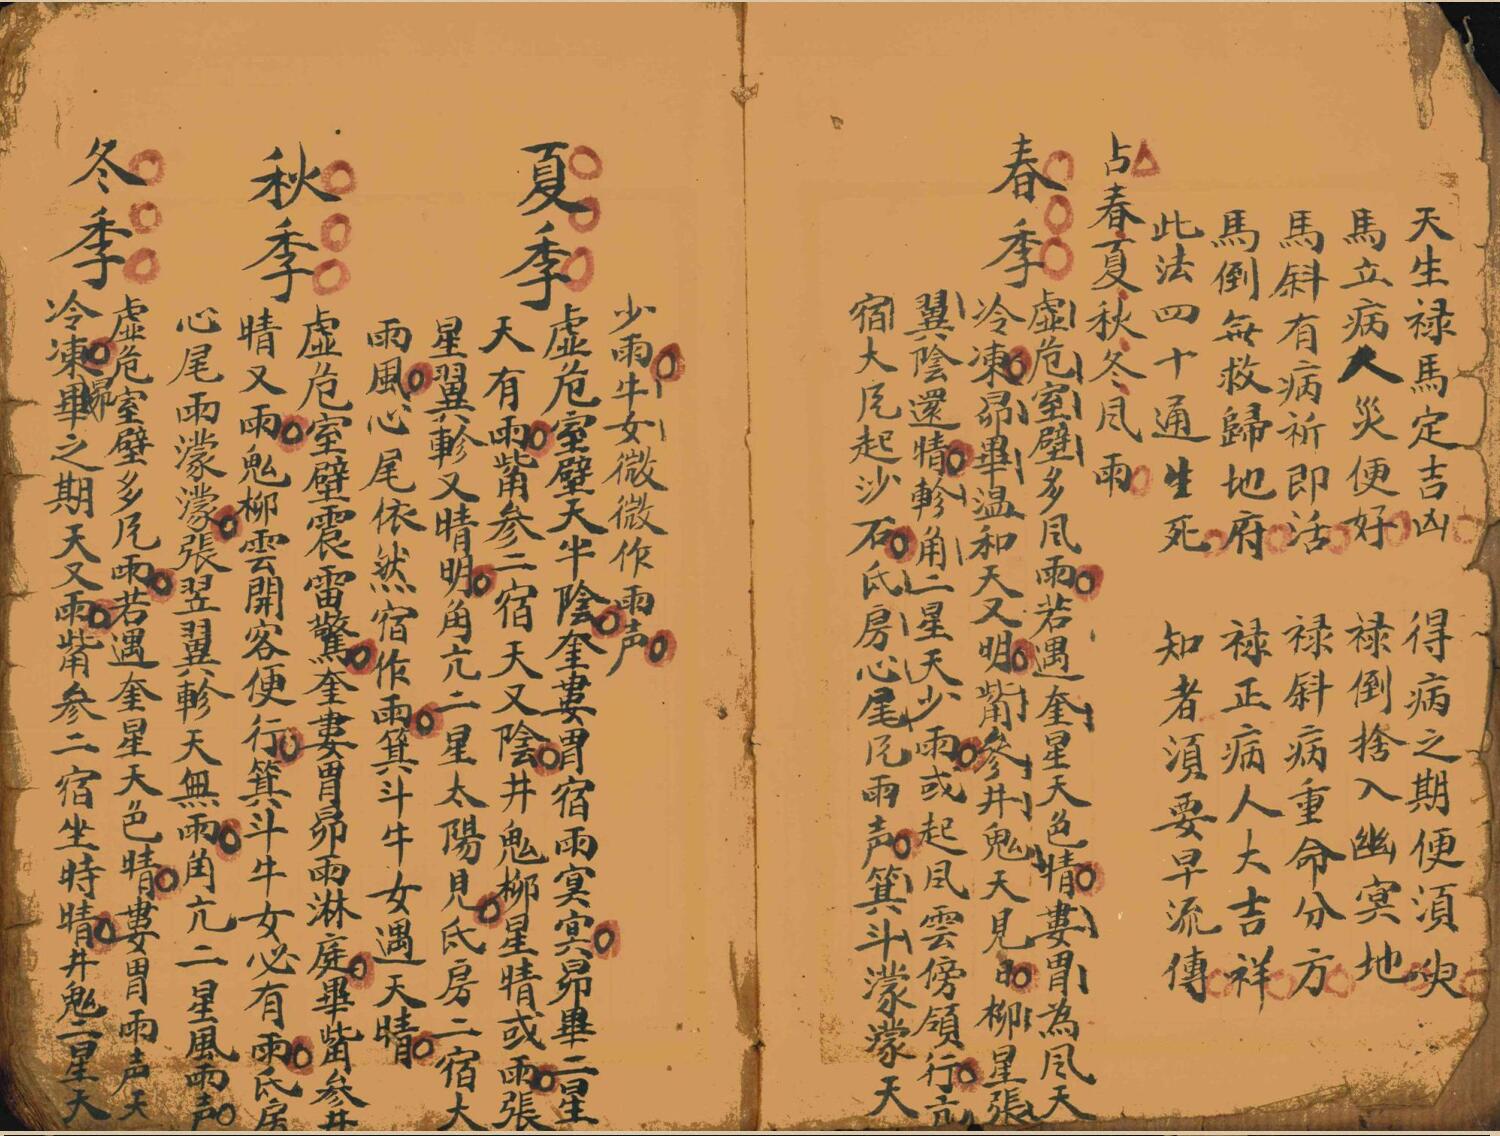 天生禄馬定吉凶　得病之期便須
馬立病人災便好　禄倒捨入幽冥地
馬斜有病祈即活　禄斜病重命分方
馬倒無救歸地府　禄正病人大吉祥
此法四十通生死　知者須要早流傳
占春夏秋冬风雨
春季
虚危室壁多风雨若遇奎星天色晴婁胃為风天
冷凍昴畢温和天又明觜參井鬼天見日柳星張
翼陰還晴軫角二星天少雨或起风雲傍領行亢
宿大风起沙石氐房心尾风雨声箕斗濛濛天
少雨牛女微微作雨声
夏季
虚危室壁天半陰奎婁胃宿雨冥冥昴畢二星
天有雨觜參二宿天又陰井鬼柳星晴或雨張
星翼軫又晴明角亢二星太陽見氐房二宿大
雨風心尾依然宿作雨箕斗牛女遇天晴
秋季
虚危室壁震雷驚奎婁胃昴雨淋庭畢觜參井
晴又雨鬼柳雲開客便行箕斗牛女必有雨氐房
心尾雨濛濛張翌翼軫天無雨角亢二星風雨声
冬季
虚危室壁多风雨若遇奎星天色晴婁胃雨声天
冷凍昴畢之期天又雨觜參二宿坐時晴井鬼二星天